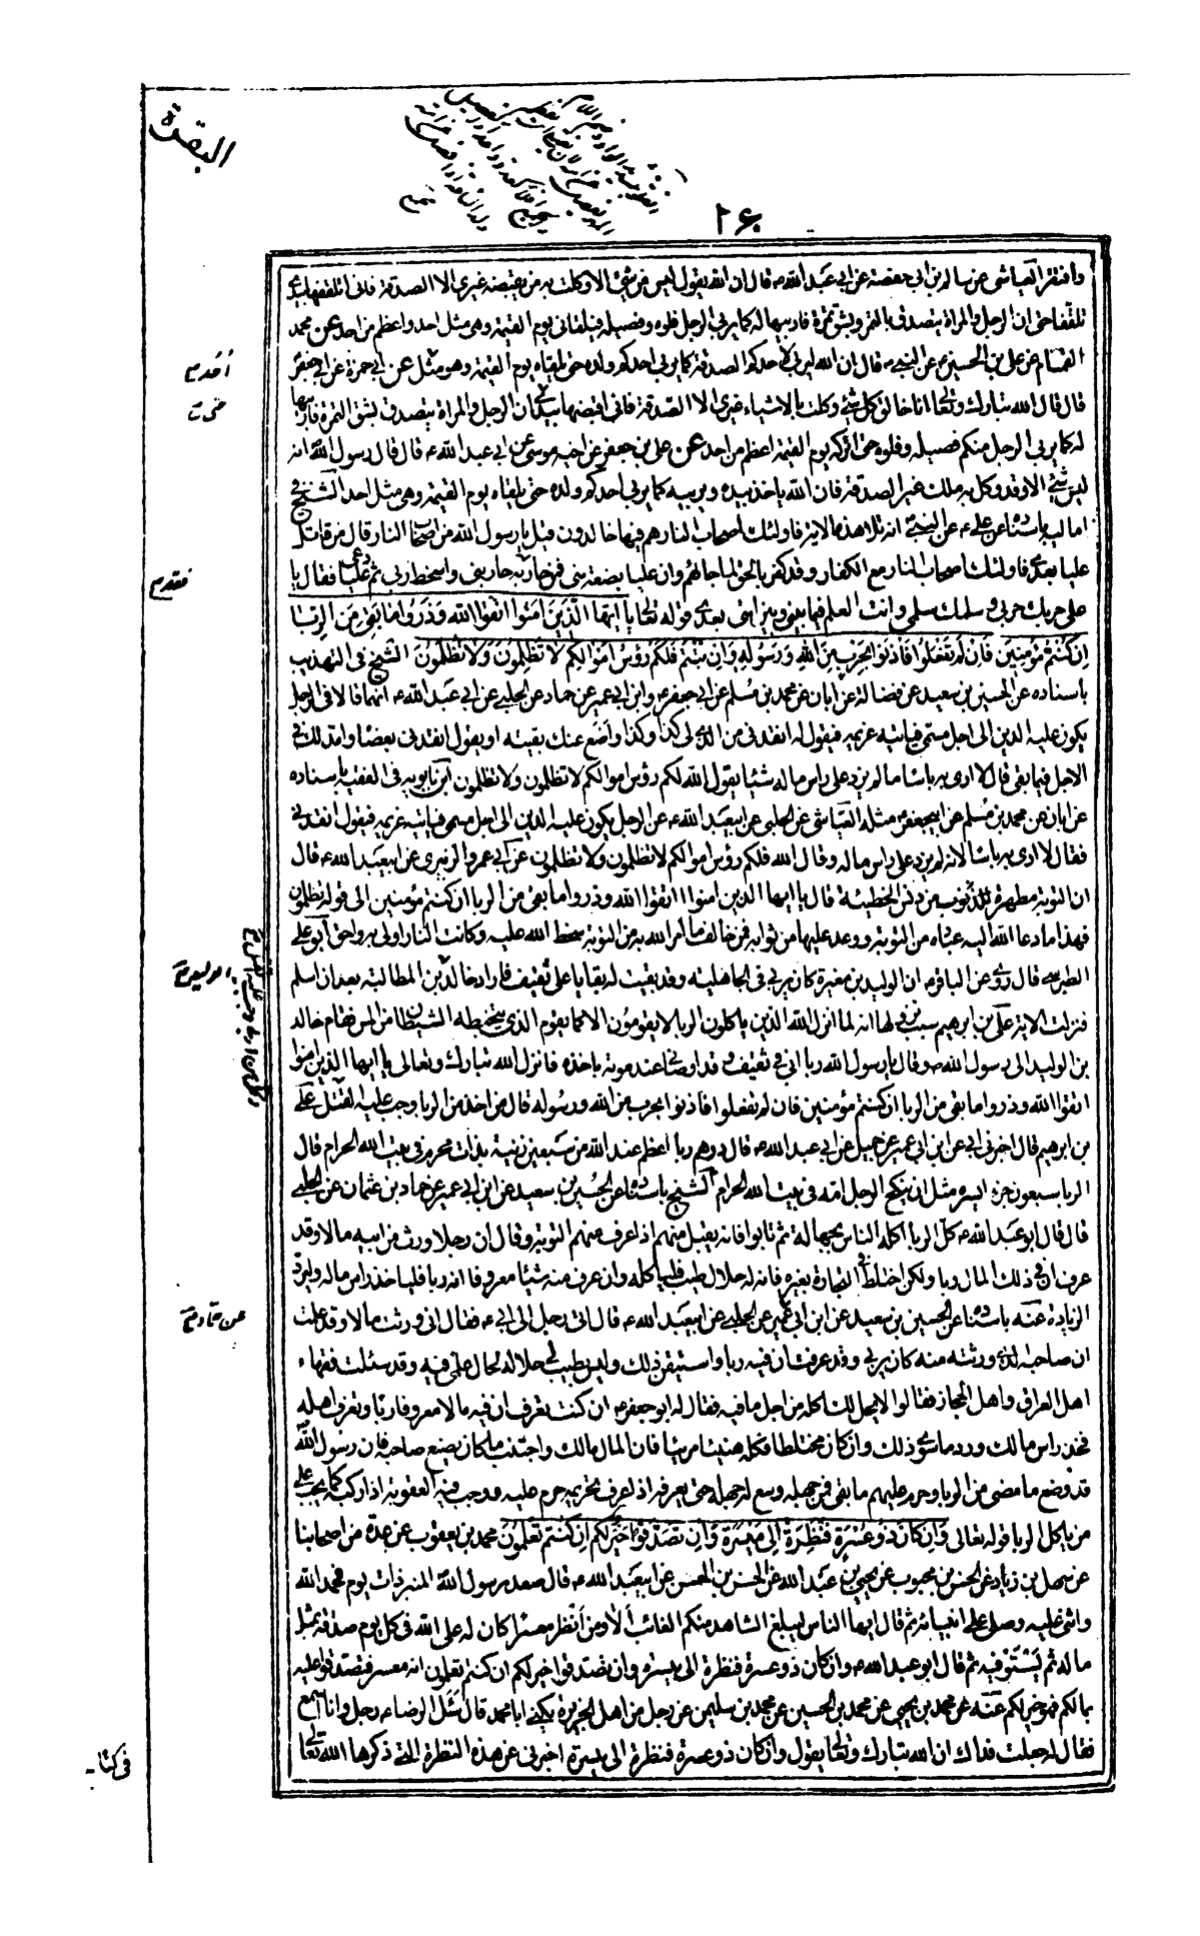 البقرة
۲۶۰
وافتقر العیاشی عن سالم بن ابی حفصة عن ابی عبد الله ع قال ان الله یقول لیس من شئ الا وکلت به من یقبضه غیری الا الصدقة فانی اتلقفها بیدی
تلقفا حتی ان الرجل والمراة یتصدق بالتمرة وبشق تمرة فاربیها له کما یربی الرجل فلوه وفصیله فیلقانی یوم القیمة وهی مثل احد واعظم من احد عن محمد
القمام عن علی بن الحسین ع عن النبی ص قال ان الله لیربی لاحدکم الصدقة کما یربی احدکم ولده حتی یلقاه یوم القیمة وهو مثل عن ابی حمزة عن ابی جعفر
قال قال الله تبارک وتعالی انا خالق کل شئ وکلت بالاشیاء غیری الا الصدقة فانی اقبضها بیدی حتی ان الرجل والمراة یتصدق بشق التمرة فاربیها
له کما یربی الرجل منکم فصیله وفلوه حتی اترکه یوم القیمة اعظم من احد عن علی بن جعفر عن اخیه موسی عن ابی عبد الله ع قال قال رسول الله انه
لیس شئ الا وقد وکل به ملک غیر الصدقة فان الله یاخذ بیده ویربیه کما یربی احدکم ولده حتی یلقاه یوم القیمة وهی مثل احد الشیخ فی
امالیه باسناده عن علی ع عن النبی انه تلا هذه الایة فاولئک اصحاب النار هم فیها خالدون قیل یا رسول الله من اصحاب النار قال من قاتل
علیا بعدی فاولئک اصحاب النار مع الکفار وقد کفر بالحق لما جاءهم وان علیا بضعة منی فمن حاربه حاربنی واسخط ربی ثم دعی علیا فقال یا
علی حربک حربی وسلمک سلمی وانت العلم فیما بینی وبین امتی بعدی قوله تعالی یا ایها الذین امنوا اتقوا الله وذروا ما بقی من الربا
ان کنتم مؤمنین فان لم تفعلوا فاذنوا بحرب من الله ورسوله وان تبتم فلکم رؤس اموالکم لا تظلمون ولا تظلمون الشیخ فی التهذیب
باسناده عن الحسین بن سعید عن فضالة عن ابان عن محمد بن مسلم عن ابی جعفر ع وابن ابی عمیر عن حماد عن الحلبی عن ابی عبد الله ع انهما قالا فی الرجل
یکون علیه الدین الی اجل مسمی فیاتیه غریمه فیقول له انقدنی من الذی لی کذا وکذا واضع عنک بقیته او یقول انقدنی بعضا وامد لک فی
الاجل فیما بقی قال لا اری به باسا ما لم یزد علی راس ماله شیئا یقول الله لکم رؤس اموالکم لا تظلمون ولا تظلمون ابن بابویه فی الفقیه باسناده
عن ابان عن محمد بن مسلم عن ابیجعفر ع مثله العیاشی عن الحلبی عن ابیعبد الله ع عن الرجل یکون علیه الدین الی اجل مسمی فیاتیه غریمه فیقول انقدنی
فقال لا اری به باسا لانه لم یزد علی راس ماله وقال الله فلکم رؤس اموالکم لا تظلمون ولا تظلمون عن ابی عمرو الزبیری عن ابیعبد الله ع قال
ان التوبة مطهرة للذنوب من دنس الخطیئة قال یا ایها الذین امنوا اتقوا الله وذروا ما بقی من الربا ان کنتم مؤمنین الی قوله تظلمون
فهذا ما دعا الله الیه عباده من التوبة ووعد علیها من ثوابه فمن خالف ما امر الله به من التوبة سخط الله علیه وکانت النار اولی به واحق ابو علی
الطبرسی قال روی عن الباقر ع ان الولید بن مغیرة کان یربی فی الجاهلیة وقد بقیت له بقایا علی ثقیف فاراد خالد بن المطالبة بعد ان اسلم
فنزلت الایة علی بن ابرهیم سبب نزولها انه لما انزل الله الذین یاکلون الربا لا یقومون الا کما یقوم الذی یتخبطه الشیطان من المس فقام خالد
بن الولید الی رسول الله ص وقال یا رسول الله ربا ابی فی ثقیف وقد اوصانی عند موته باخذه فانزل الله تبارک وتعالی یا ایها الذین امنوا
اتقوا الله وذروا ما بقی من الربا ان کنتم مؤمنین فان لم تفعلوا فاذنوا بحرب من الله ورسوله قال من اخذ من الربا وجب علیه القتل علی
بن ابرهیم قال اخبرنی ابی عن ابن ابی عمیر عن جمیل عن ابی عبد الله ع قال درهم ربا اعظم عند الله من سبعین زنیة بذات محرم فی بیت الله الحرام قال
الربا سبعون جزء ایسره مثل ان ینکح الرجل امه فی بیت الله الحرام الشیخ باسناده عن الحسین بن سعید عن ابن ابی عمیر عن حماد بن عثمان عن الحلبی
قال قال ابو عبد الله ع کل الربا اکله الناس بجهالة ثم تابوا فانه یقبل منهم اذا عرف منهم التوبة وقال ان رجلا ورث من ابیه مالا وقد
عرف ان فی ذلک المال ربا ولکن اختلط فی التجارة بغیره فانه له حلال طیب فلیاکله وان عرف منه شیئا معروفا انه ربا فلیاخذ راس ماله ولیرد
الزیادة عنه باسناده عن الحسین بن سعید عن ابن ابی عمیر عن الحلبی عن ابیعبد الله ع قال اتی رجل الی ابی ع فقال انی ورثت مالا وقد علمت
ان صاحبه الذی ورثته منه کان یربی وقد عرفت ان فیه ربا واستیقن ذلک ولیس یطیب لی حلاله لحال علمی فیه وقد سئلت فقهاء
اهل العراق واهل الحجاز فقالوا لا یحل لک اکله من اجل ما فیه فقال له ابو جعفر ع ان کنت تعرف ان فیه مالا معروفا ربا وتعرف اهله
فخذ راس مالک ورد ما سوی ذلک وان کان مختلطا فکله هنیئا مریئا فان المال مالک واجتنب ما کان یصنع صاحبه فان رسول الله
قد وضع ما مضی من الربا وحرم علیهم ما بقی فمن جهله وسع له جهله حتی یعرفه اذا عرف تحریمه حرم علیه ووجب فیه العقوبة اذا رکبه کما یجب علی
من یاکل الربا قوله تعالی وان کان ذو عسرة فنظرة الی میسرة وان تصدقوا خیر لکم ان کنتم تعلمون محمد بن یعقوب عن عدة من اصحابنا
عن سهل بن زیاد عن الحسن بن محبوب عن یحیی بن عبد الله عن الحسن بن الحسن عن ابیعبد الله ع قال صعد رسول الله المنبر ذات یوم فحمد الله
واثنی علیه وصلی علی انبیائه ثم قال ایها الناس لیبلغ الشاهد منکم الغائب الا ومن انظر معسرا کان له علی الله فی کل یوم صدقة بمثل
ماله ثم یستوفیه ثم قال ابو عبد الله ع وان کان ذو عسرة فنظرة الی میسرة وان تصدقوا خیر لکم ان کنتم تعلمون انه معسر فتصدقوا علیه
بمالکم فهو خیر لکم عنه عن محمد بن یحیی عن محمد بن الحسین عن محمد بن سلیمن عن رجل من اهل الجزیرة یکنی ابا محمد قال سئل الرضاء رجل وانا اسمع
فقال له جعلت فداک ان الله تبارک وتعالی یقول وان کان ذو عسرة فنظرة الی میسرة اخبرنی عن هذه النظرة التی ذکرها الله تعالی
فی کتابـ